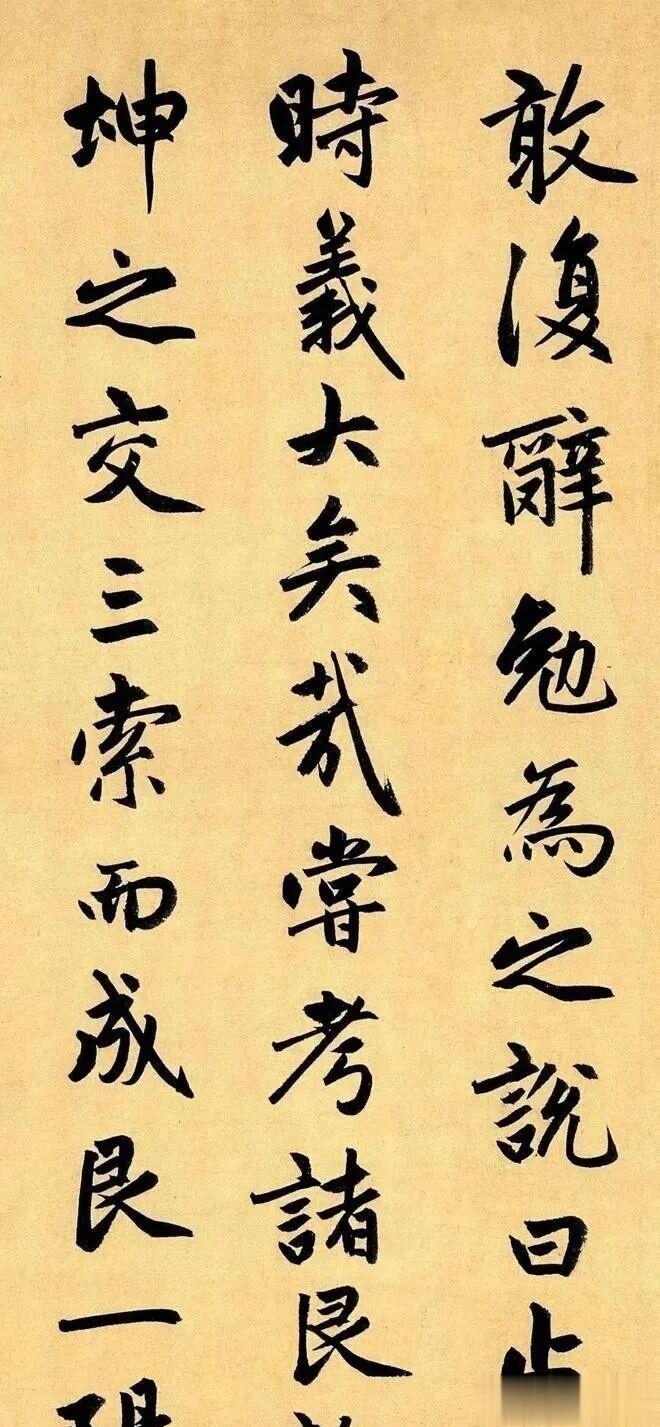 敢復辭勉為之說曰止
時義大矣哉嘗考諸艮
坤之交三索而成艮一陽